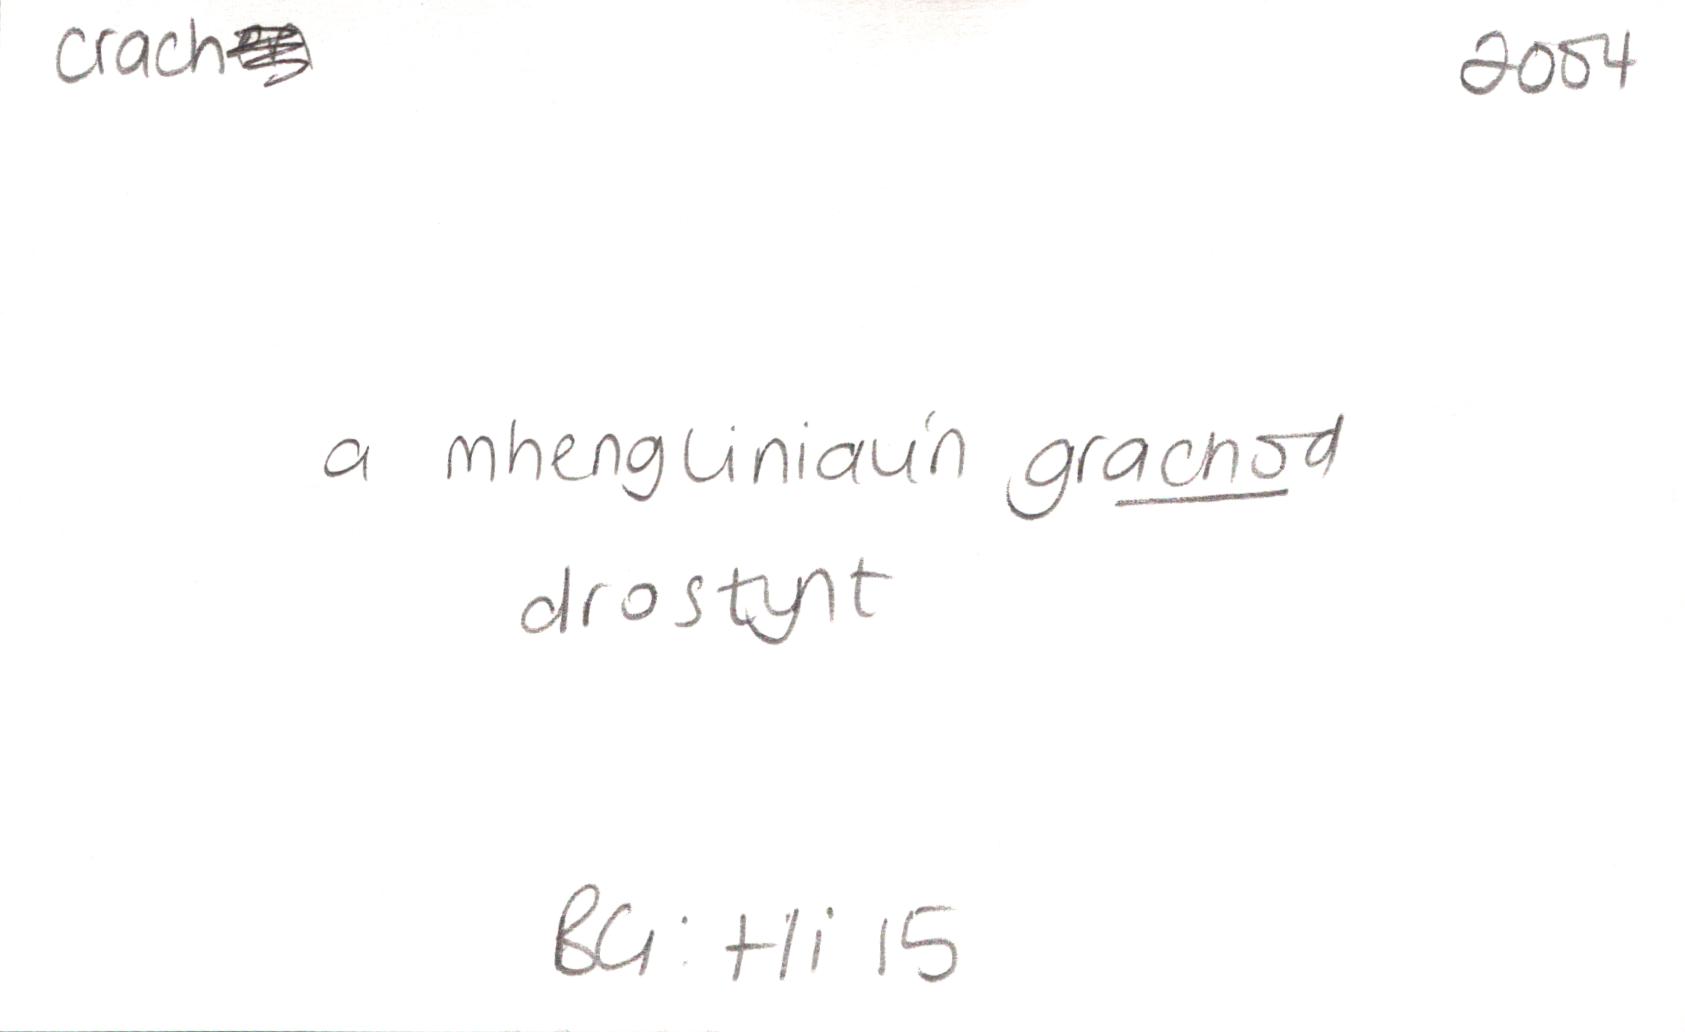 crach 2004
a mhengliniau'n grachod
drostynt
BG: Hi 15